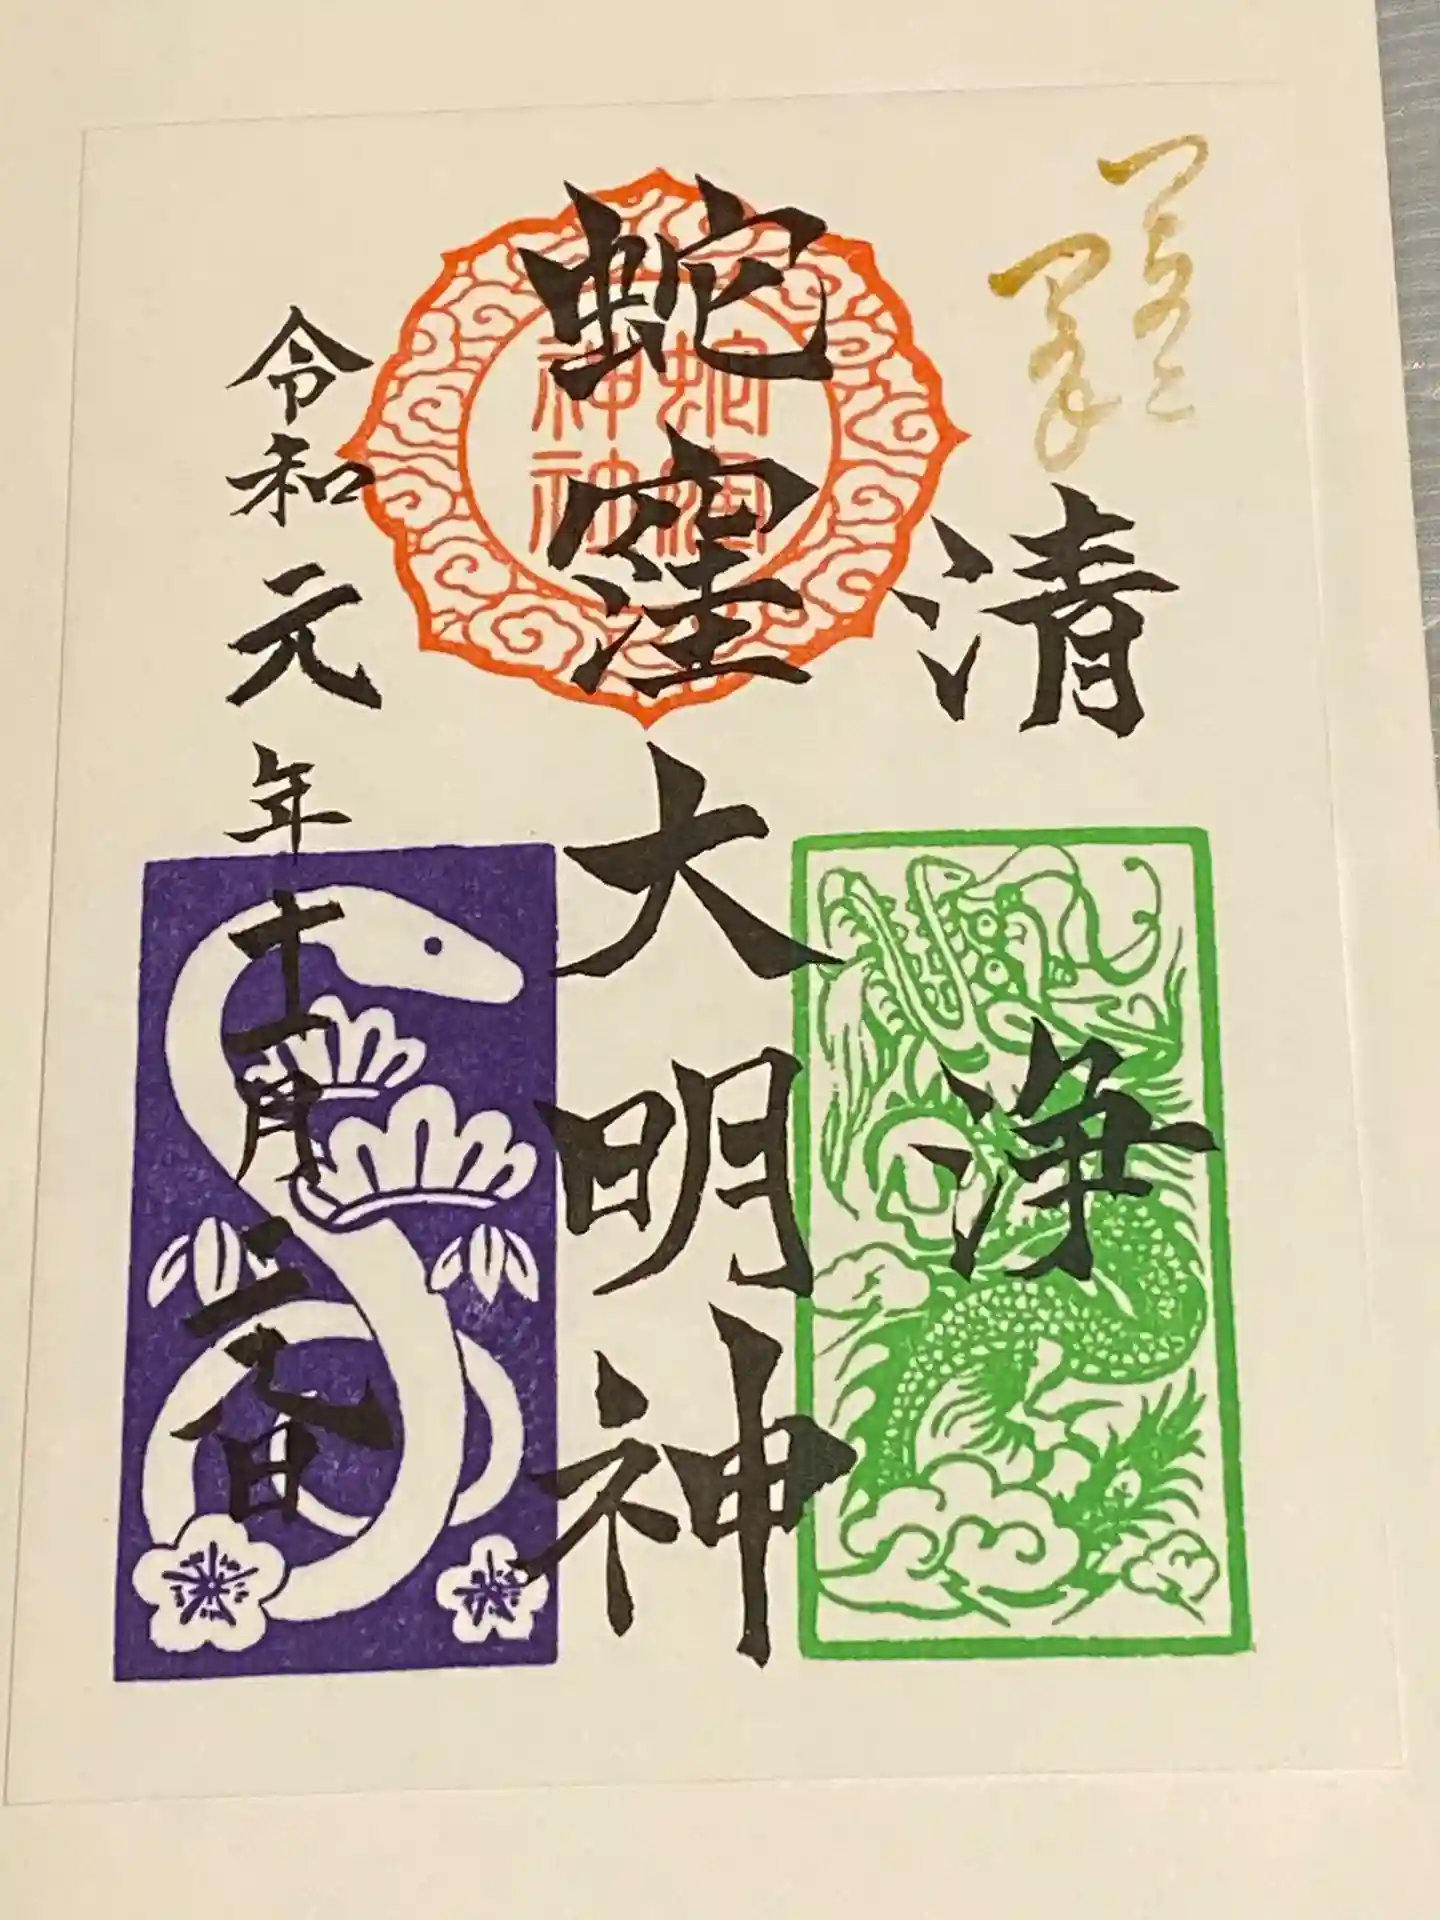 清浄
蛇窪大明神
蛇窪
神社
令和元年十一月二八日